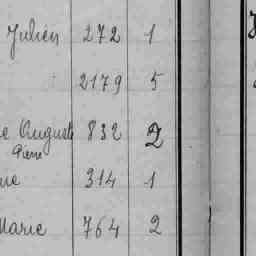 Julien 272 1
2179 5
Auguste 832 2
Pierre
314 1
Marie 764 2